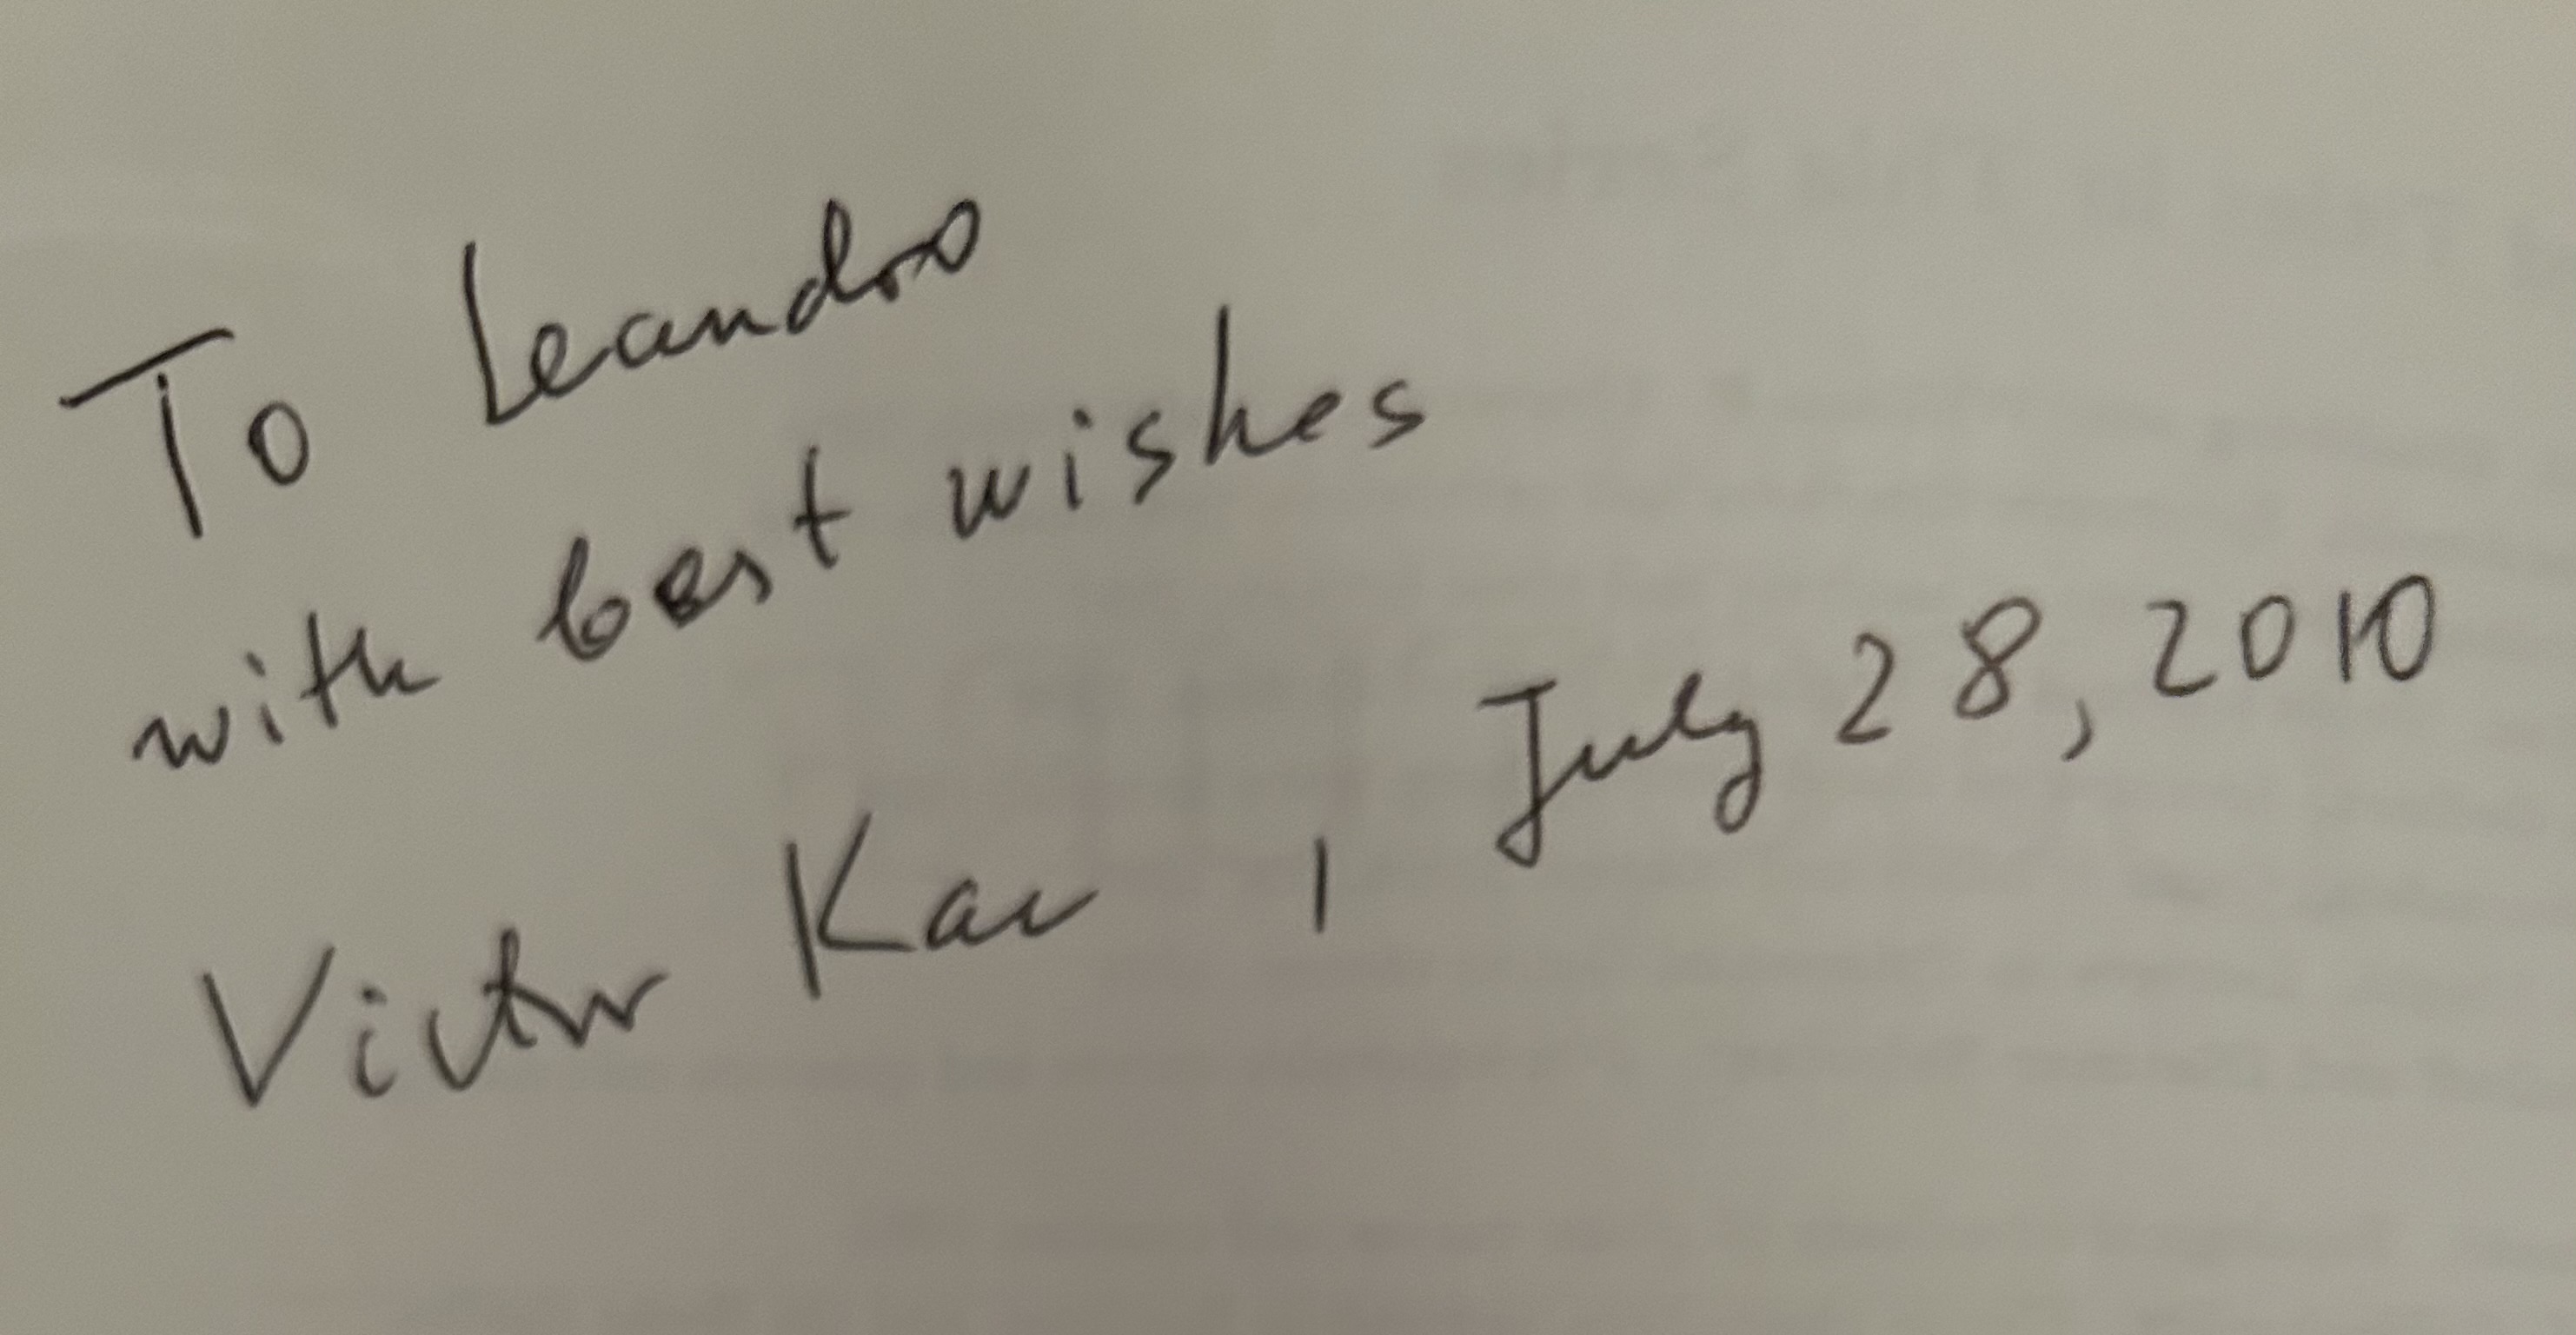 To Leandro
with best wishes
Victor Kac, July 28, 2010